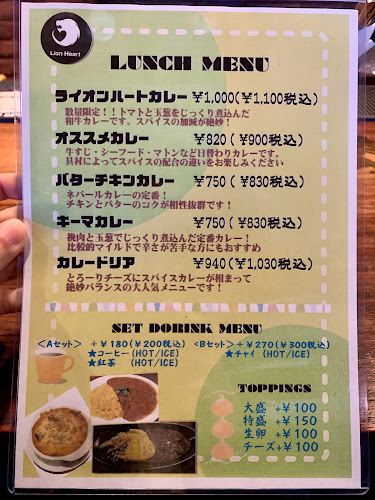 Lion Heart
LUNCH MENU
ライオンハートカレー ￥1,000(￥1,100税込)
数量限定！！トマトと玉葱をじっくり煮込んだ
和牛カレーです。スパイスの加減が絶妙！
オススメカレー ￥820(￥900税込)
牛すじ・シーフード・マトンなど日替わりカレーです。
具材によってスパイスの配合の違いをお楽しみください
バターチキンカレー ￥750(￥830税込)
ネパールカレーの定番！
チキンとバターのコクが相性抜群です！
キーマカレー ￥750(￥830税込)
挽肉と玉葱でじっくり煮込んだ定番カレー！
比較的マイルドで辛さが苦手な方にもおすすめ
カレードリア ￥940(￥1,030税込)
とろーりチーズにスパイスカレーが相まって
絶妙バランスの大人気メニューです！
SET DORINK MENU
<Aセット> +￥180(￥200税込) <Bセット> +￥270(￥300税込)
★コーヒー(HOT/ICE) ★チャイ (HOT/ICE)
★紅茶 (HOT/ICE)
TOPPINGS
大盛 +￥100
特盛 +￥150
生卵 +￥100
チーズ+￥100